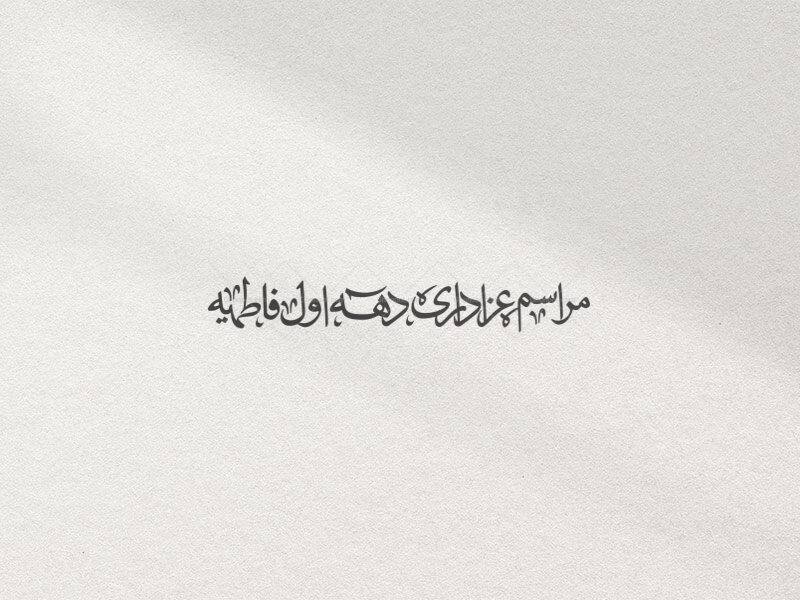 مراسم عزاداری دهه اول فاطمیه